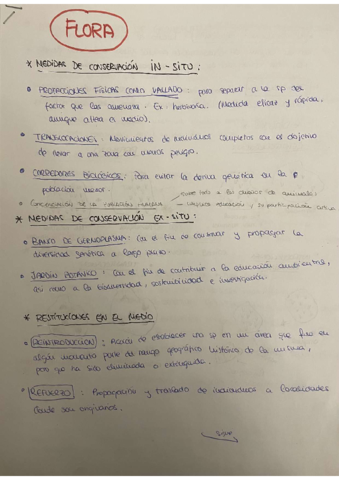 FLORA
* MEDIDAS DE CONSERVACIÓN IN-SITU:
• PROTECCIONES FÍSICAS COMO VALLADO: para separar a la sp del
factor que las amenaza. Ex. Herbivoría. (Medida eficaz y rápida,
aunque altera el medio).
• TRANSLOCACIONES: Movimientos de individuos completos con el objetivo
de llevar a una zona con menos peligro.
• CORREDORES BIOLÓGICOS: Para evitar la deriva genética en la
población menor.
• Concienciación de la
sobre todo a los
educación y participación
* MEDIDAS DE CONSERVACIÓN EX-SITU:
• BANCO DE GERMOPLASMA: Con el fin de conservar y propagar la
diversidad genética a largo plazo.
• JARDÍN BOTÁNICO: Con el fin de contribuir a la educación ambiental,
así como a la biodiversidad, sostenibilidad e investigación.
* RESTITUCIONES EN EL MEDIO
• REINTRODUCCIÓN: Acción de establecer una sp en un área que fue en
algún momento parte del rango geográfico histórico de la misma,
pero que ha sido eliminada o extinguida.
• REFUERZO: Propagación y traslado de individuos a localidades
donde son originarios.